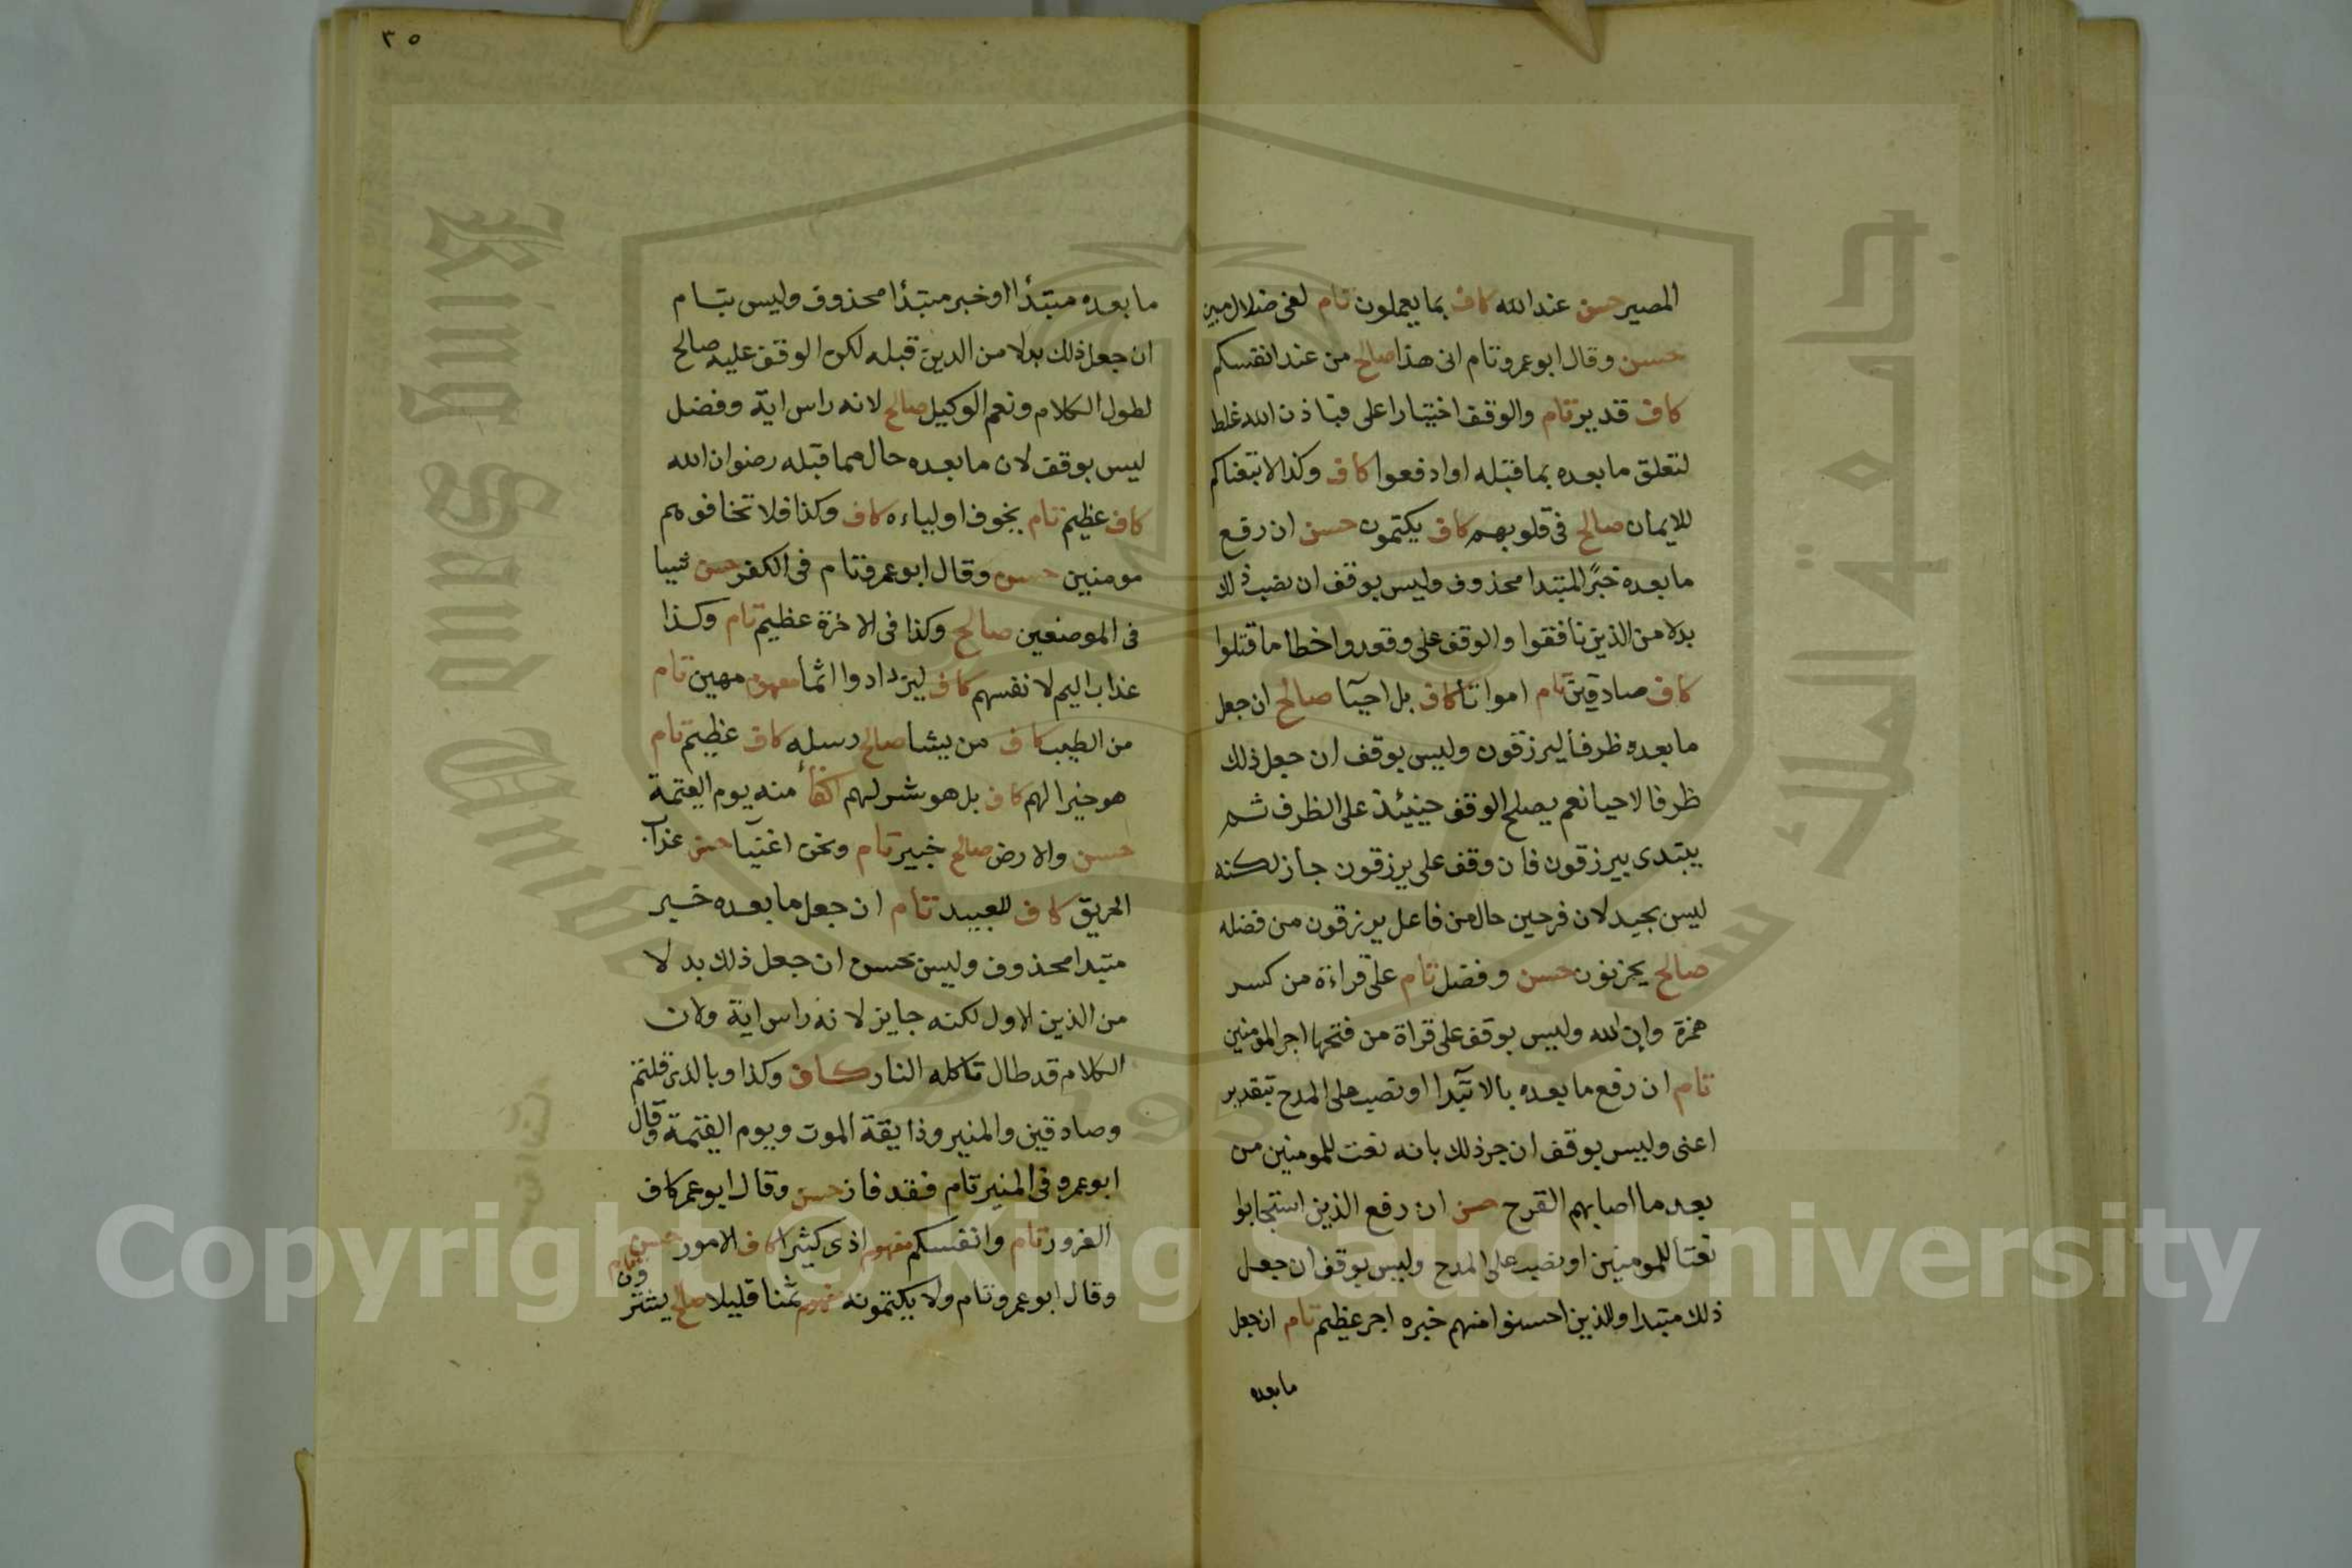 المصير حسن عند الله كاف بما يعملون تام لفى ضلال مبين
حسن وقال ابو عمرو تام انى هذا صالح من عند انفسكم
كاف قدير تام والوقف اختيارا على فباذن الله غلط
لتعلق ما بعده بما قبله او ادفعوا كاف وكذا لاتبعناكم
للايمان صالح فى قلوبهم كاف يكتمون حسن ان رفع
ما بعده خبرًا لمبتدا محذوف وليس بوقف ان نصب ذلك
بدلا من الذين نافقوا والوقف على وقعدوا خطا ما قتلوا
كاف صادقين تام امواتا كاف بل احيآ صالح ان جعل
ما بعده ظرفا ليرزقون وليس بوقف ان جعل ذلك
ظرفا لاحيا نعم يصلح الوقف حينئذ على الظرف ثم
يبتدى بيرزقون فان وقف على يرزقون جاز لكنه
ليس بجيد لان فرحين حال من فاعل يرزقون من فضله
صالح يحزنون حسن وفضل تام على قراءة من كسر
همزة وان الله وليس بوقف على قراة من فتحها اجر المومنين
تام ان رفع ما بعده بالابتدآ او نصب على المدح بتقدير
اعنى وليس بوقف ان جر ذلك بانه نعت للمومنين من
بعد ما اصابهم القرح حسن ان رفع الذين استجابوا
نعتا للمومنين او نصب على المدح وليس بوقف ان جعل
ذلك مبتدا وللذين احسنوا منهم خبره اجر عظيم تام ان جعل
ما بعده
٣٥
ما بعده مبتدأ او خبر مبتدأ محذوف وليس بتام
ان جعل ذلك بدلا من الذين قبله لكن الوقف عليه صالح
لطول الكلام ونعم الوكيل صالح لانه راس اية وفضل
ليس بوقف لان ما بعده حال مما قبله رضوان الله
كاف عظيم تام يخوف اولياءه كاف وكذا فلا تخافوهم
مومنين حسن وقال ابو عمرو تام فى الكفر حسن شيا
فى الموضعين صالح وكذا فى الاخرة عظيم تام وكذا
عذاب اليم لانفسهم كاف ليزدادوا اثما مفهوم مهين تام
من الطيب كاف من يشا صالح رسله كاف عظيم تام
هو خيرا لهم كاف بل هو شر لهم اكفأ منه يوم القيمة
حسن والارض صالح خبير تام ونحن اغنيآ حسن عذاب
الحريق كاف للعبيد تام ان جعل ما بعده خبر
مبتدا محذوف وليس بحسن ان جعل ذلك بدلا
من الذين الاول لكنه جايز لانه راس اية ولان
الكلام قد طال تاكله النار كاف وكذا وبالذى قلتم
وصادقين والمنير وذايقة الموت ويوم القيمة وقال
ابو عمرو فى المنير تام فقد فاز حسن وقال ابو عمر كاف
الغرور تام وانفسكم مفهوم اذى كثيرا كاف الامور حسن
وقال ابو عمرو تام ولا يكتمونه مفهوم ثمنا قليلا صالح يشترون
Copyright © King Saud University
جامعة الملك سعود
King Saud University